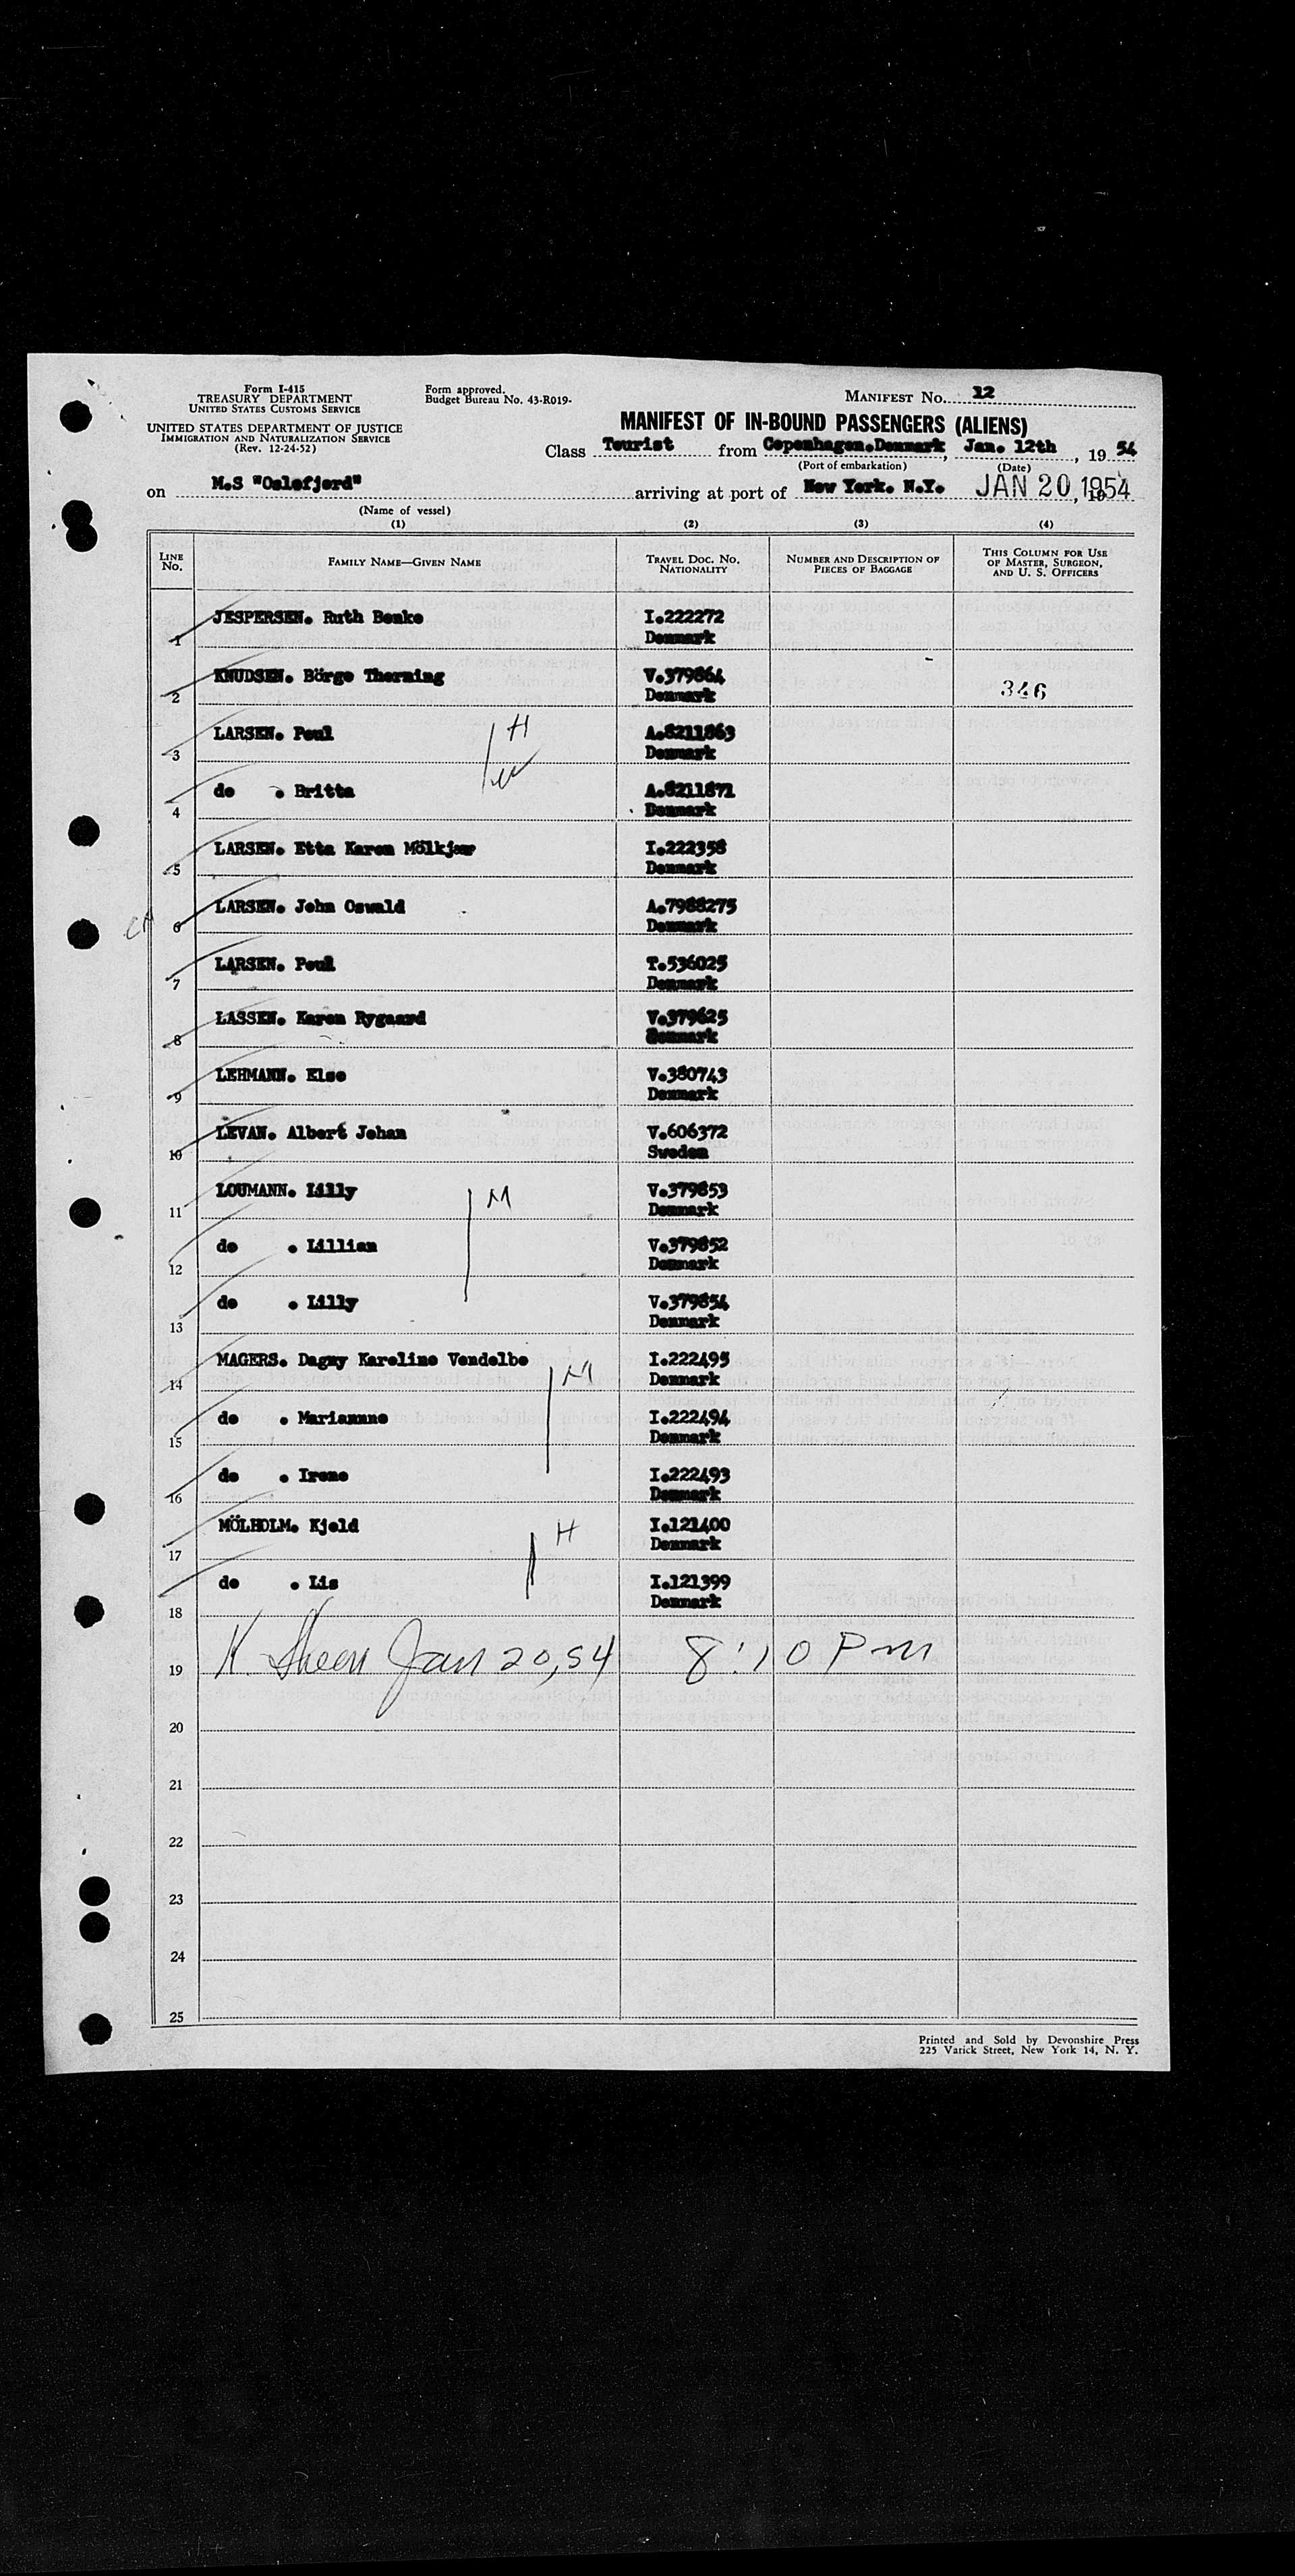 Form I-415
TREASURY DEPARTMENT
UNITED STATES CUSTOMS SERVICE
UNITED STATES DEPARTMENT OF JUSTICE
IMMIGRATION AND NATURALIZATION SERVICE
(Rev. 12-24-52)
Form approved.
Budget Bureau No. 43-R019-
MANIFEST No. 12
MANIFEST OF IN-BOUND PASSENGERS (ALIENS)
Class Tourist from Copenhagen.Denmark, Jan. 12th, 19 54
(Port of embarkation) (Date)
on M.S "Oslofjord" arriving at port of New York. N.Y. JAN 20, 1954
(Name of vessel)
(1) (2) (3) (4)
LINE No. FAMILY NAME—GIVEN NAME TRAVEL DOC. NO. NATIONALITY NUMBER AND DESCRIPTION OF PIECES OF BAGGAGE THIS COLUMN FOR USE OF MASTER, SURGEON, AND U. S. OFFICERS
1 JESPERSEN. Ruth Benke I.222272
Denmark
2 KNUDSEN. Börge Thorning V.379864
Denmark 346
3 LARSEN. Poul H A.8211863
Denmark
4 do . Britta A.8211871
Denmark
5 LARSEN. Etta Karen Mölkjær I.222358
Denmark
6 LARSEN. John Oswald A.7988275
Denmark
7 LARSEN. Poul T.536025
Denmark
8 LASSEN. Karen Rygaard V.379625
Denmark
9 LEHMANN. Else V.380743
Denmark
10 LEVAN. Albert Johan V.606372
Sweden
11 LOUMANN. Lilly M V.379853
Denmark
12 do . Lillian V.379852
Denmark
13 do . Lilly V.379854
Denmark
14 MAGERS. Dagny Karoline Vendelbo M I.222495
Denmark
15 do . Marianne I.222494
Denmark
16 do . Irene I.222493
Denmark
17 MÖLHOLM. Kjeld H I.121400
Denmark
18 do . Lis I.121399
Denmark
19 K. Sheen Jan 20, 54 8:10 Pm
20
21
22
23
24
25
Printed and Sold by Devonshire Press
225 Varick Street, New York 14, N. Y.